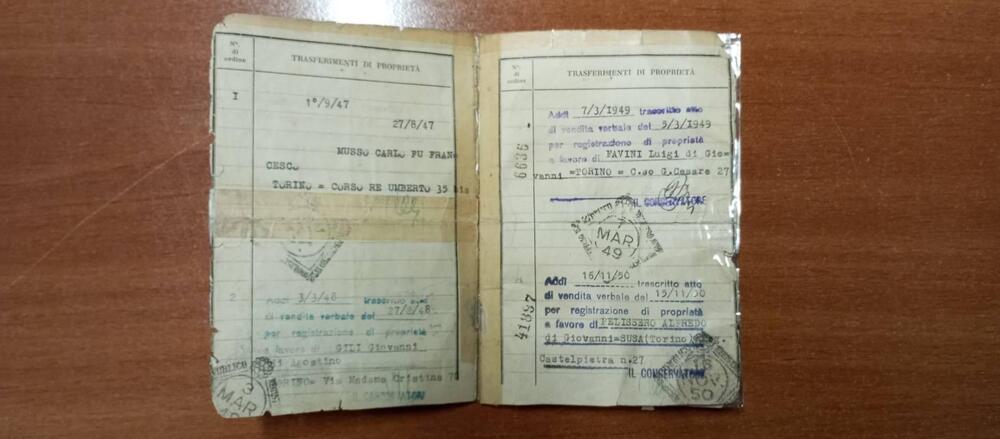 N°.
di
ordine
TRASFERIMENTI DI PROPRIETÀ
I
1°/9/47
27/8/47
MUSSO CARLO FU FRAN=
CESCO
TORINO = CORSO RE UMBERTO 35 bis
2
Addì 3/3/48 trascritto atto
di vendita verbale del 27/2/48
per registrazione di proprietà
a favore di GILI Giovanni
di Agostino
TORINO= Via Madama Cristina 7
IL CONSERVATORE
PUBBLICO
3
MAR
N°.
di
ordine
TRASFERIMENTI DI PROPRIETÀ
6635
Addì 7/3/1949 trascritto atto
di vendita verbale del 5/3/1949
per registrazione di proprietà
a favore di FAVINI Luigi di Gio=
vanni =TORINO = C.so G.Cesare 27
IL CONSERVATORE
7
MAR
49
41897
Addì 16/11/50 trascritto atto
di vendita verbale del 15/11/50
per registrazione di proprietà
a favore di PELISSERO ALFREDO
di Giovanni=SUSA(Torino)
Castelpietra n.27
IL CONSERVATORE
50